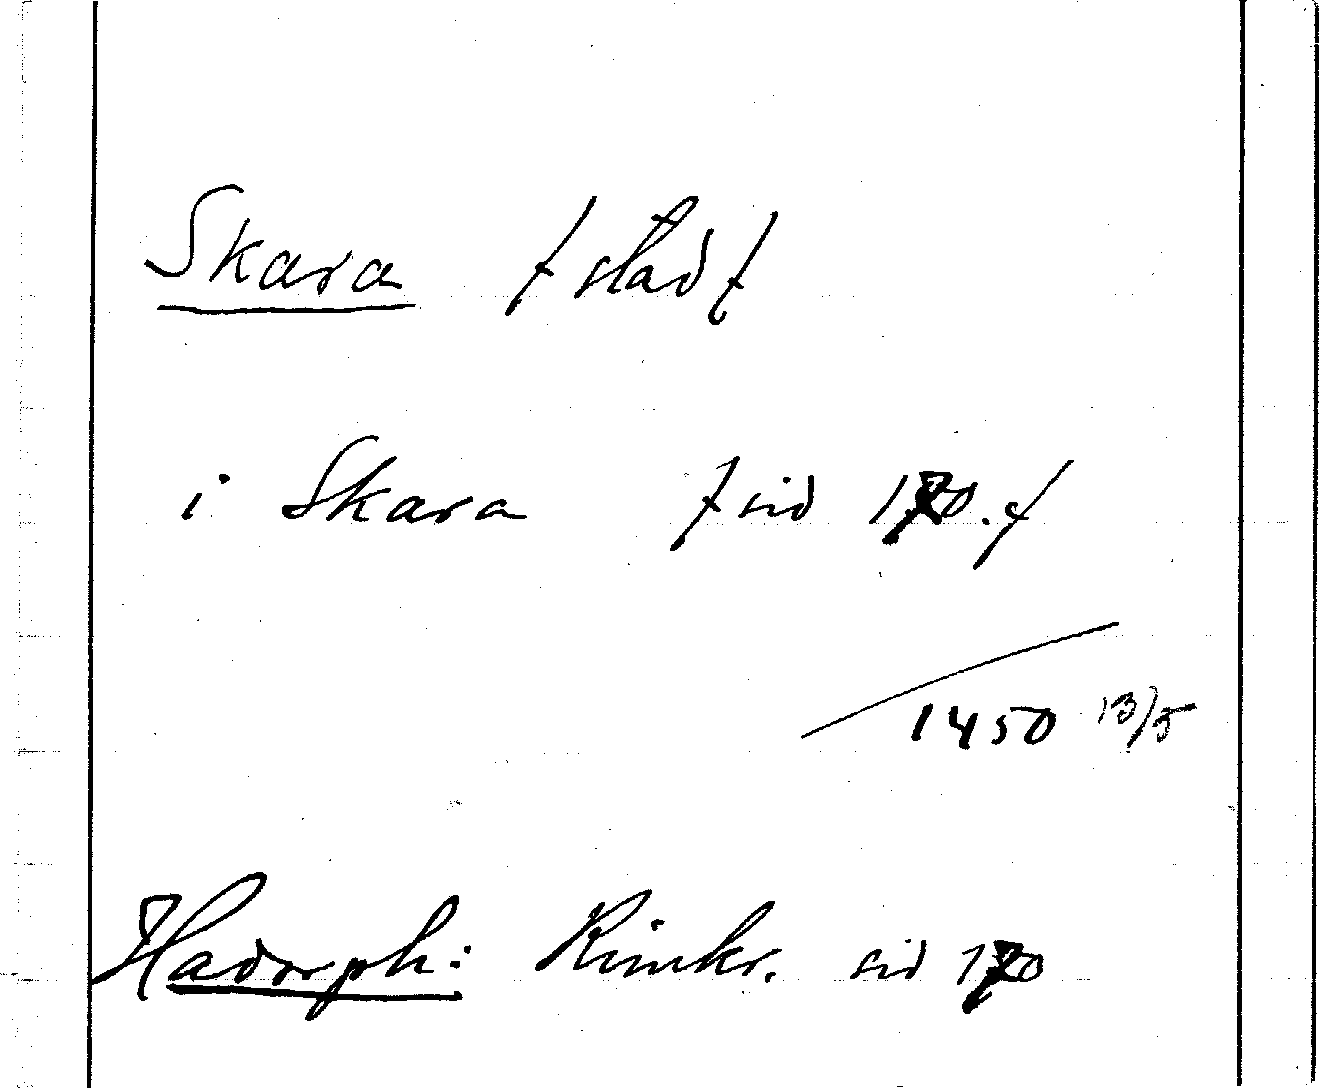 Skara / stad /
i Skara / sid 170. /
1450 13/5
Hadorph: Rimkr. sid 170